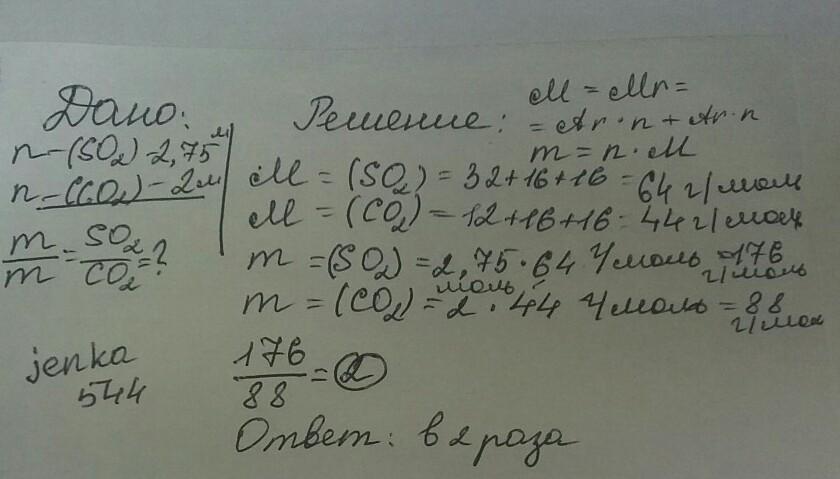 Дано:
n-(SO2)-2,75м
n-(CO2)-2м
m/m=SO2/CO2=?
Решение:
M = Mr =
= Ar·n + Ar·n
m = n·M
M = (SO2) = 32+16+16 = 64 г/моль
M = (CO2) = 12+16+16 = 44 г/моль
m = (SO2) = 2,75·64 г/моль =176 г/моль
моль
m = (CO2) = 2·44 г/моль = 88 г/мол
176/88 = 2
Ответ: в 2 раза
jenka
544